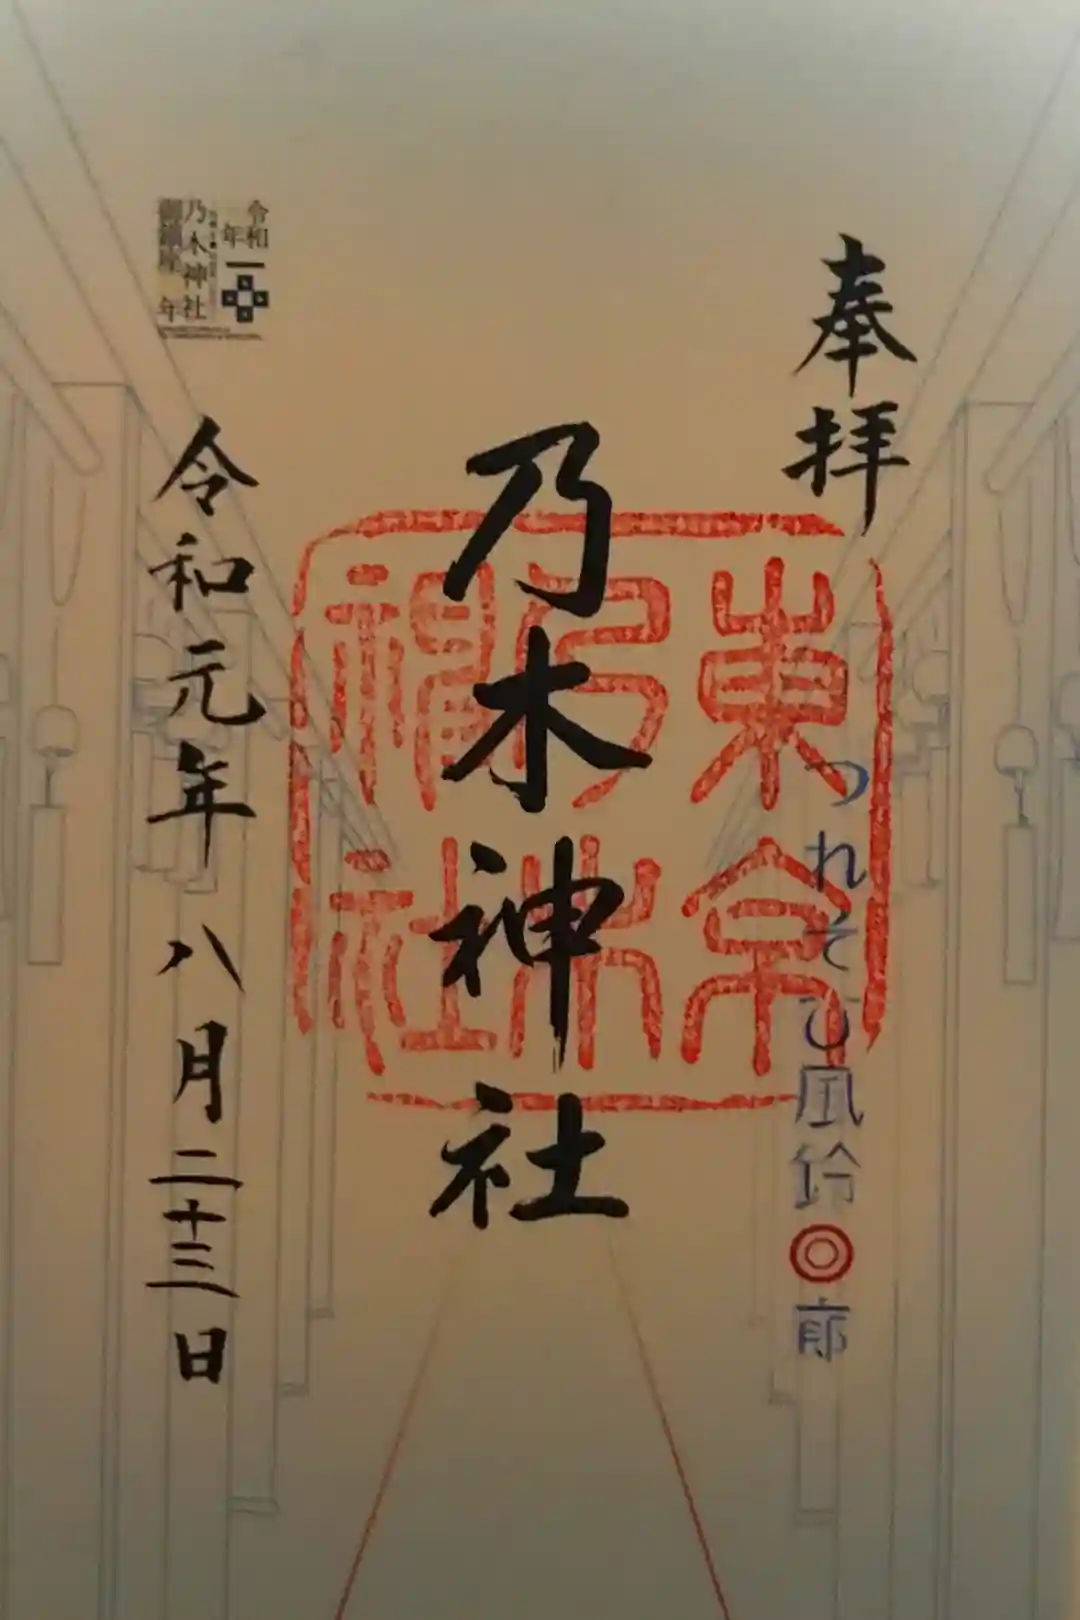 奉拝
つれそひ風鈴回廊
東京
乃木
神社
乃木神社
令和元年八月二十三日
令和
年
乃木神社
御鎮座 年